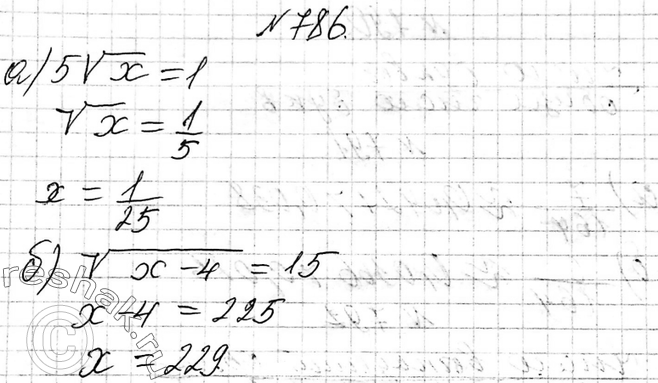 №786.
а) 5√x = 1
√x = 1/5
x = 1/25
б) √(x-4) = 15
x-4 = 225
x = 229
reshak.ru